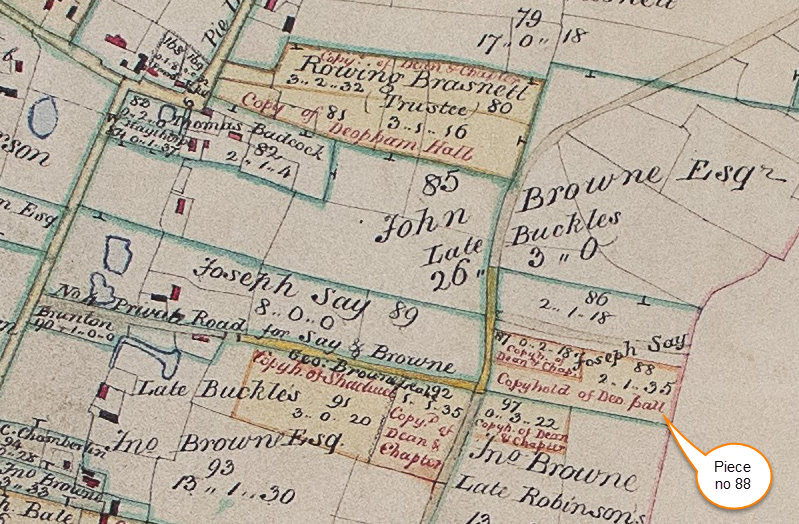 79
17 " 0 " 18
168
169
Copy. of Dean & Chapter
Rowing Brasnett
3 " 2 " 32
(Trustee) 80
3 " 1 " 16
Copy of
81
Deopham Hall
Thomas Badcock
82
2 " 1 " 4
0 " 1 " 37
85
John Browne Esqr
Late Buckles
26 " 3 " 0
Esq
Joseph Say 89
8 " 0 " 0
No 1 Private Road
for Say & Browne
Brunton
90 - 1 - 0 - 0
86
2 " 1 " 18
Joseph Say
0 " 2 " 18
Copyh. of
Dean & Chap.
88
2 " 1 " 35
Copyhold of Deo. hall
Geo: Browne
92
Copyh. of
91
3 " 0 " 20
Copy. of
Dean &
Chapter
97
0 " 3 " 22
Copyh. of Dean
& Chapter
Late Buckles
Jno Browne Esqr
93
13 " 1 " 30
Jno Browne
Late Robinson's
13
C. Chamberlin
94
Jno Browne
Bale
Piece
no 88